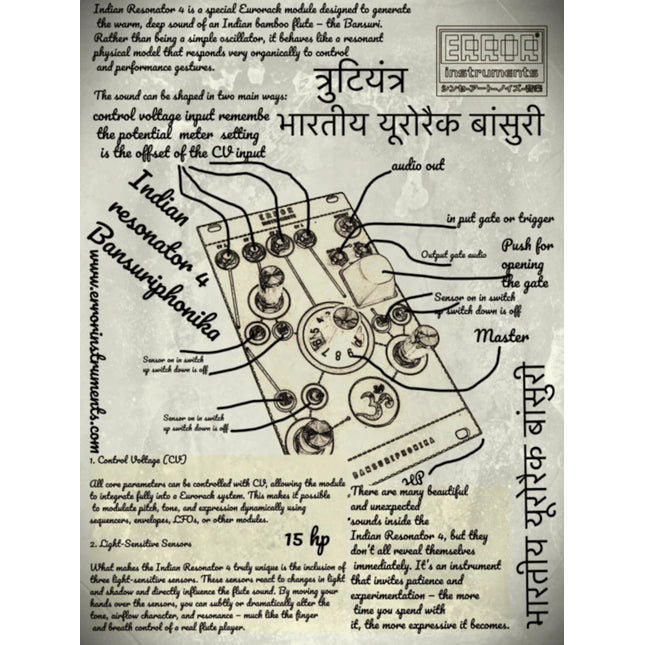 Indian Resonator 4 is a special Eurorack module designed to generate
the warm, deep sound of an Indian bamboo flute – the Bansuri.
Rather than being a simple oscillator, it behaves like a resonant
physical model that responds very organically to control
and performance gestures.
The sound can be shaped in two main ways:
control voltage input remembe
the potential meter setting
is the offset of the CV input
ERROR
instruments
シンセ・アート・ノイズ・音楽
त्रुटियंत्र
भारतीय यूरोरैक बांसुरी
audio out
in put gate or trigger
Output gate audio
Push for
opening
the gate
Sensor on in switch
up switch down is off
Master
Indian
resonator 4
Bansuriphonika
www.errorinstruments.com
ERROR
INSTRUMENTS
Sensor on in switch
up switch down is off
Sensor on in switch
up switch down is off
ॐ
BANSURIPHONIKA
HP
भारतीय यूरोरैक बांसुरी
1. Control Voltage (CV)
All core parameters can be controlled with CV, allowing the module
to integrate fully into a Eurorack system. This makes it possible
to modulate pitch, tone, and expression dynamically using
sequencers, envelopes, LFOs, or other modules.
2. Light-Sensitive Sensors
15 hp
What makes the Indian Resonator 4 truly unique is the inclusion of
three light-sensitive sensors. These sensors react to changes in light
and shadow and directly influence the flute sound. By moving your
hands over the sensors, you can subtly or dramatically alter the
tone, airflow character, and resonance – much like the finger
and breath control of a real flute player.
There are many beautiful
and unexpected
sounds inside the
Indian Resonator 4, but they
don't all reveal themselves
immediately. It's an instrument
that invites patience and
experimentation – the more
time you spend with
it, the more expressive it becomes.